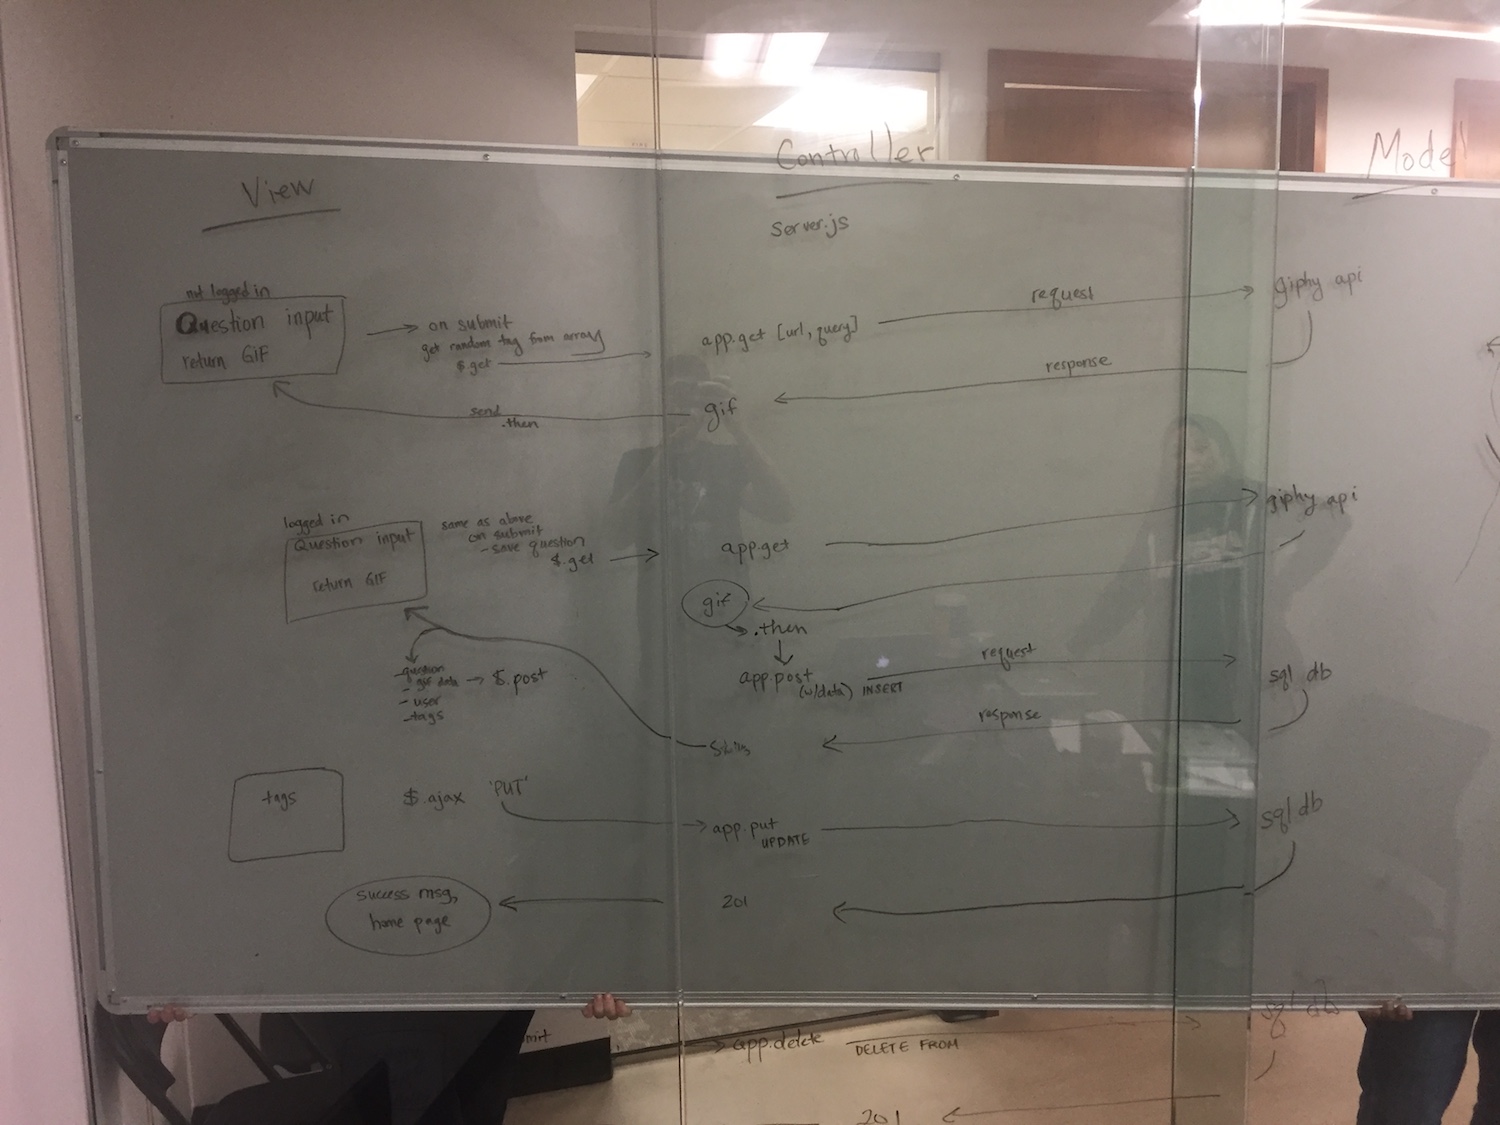 View
Controller
Model
Server.js
not logged in
Question input
return GIF
on submit
get random tag from array
$get
app.get [url, query]
request
giphy api
response
gif
send
.then
logged in
Question input
return GIF
same as above
on submit
- save question
$.get
app.get
giphy api
gif
.then
app.post
(w/data) INSERT
request
sql db
response
- question
- gif data
- user
- tags
$.post
tags
$.ajax 'PUT'
app.put
UPDATE
sql db
201
success msg,
home page
app.delete
DELETE FROM
sql db
201